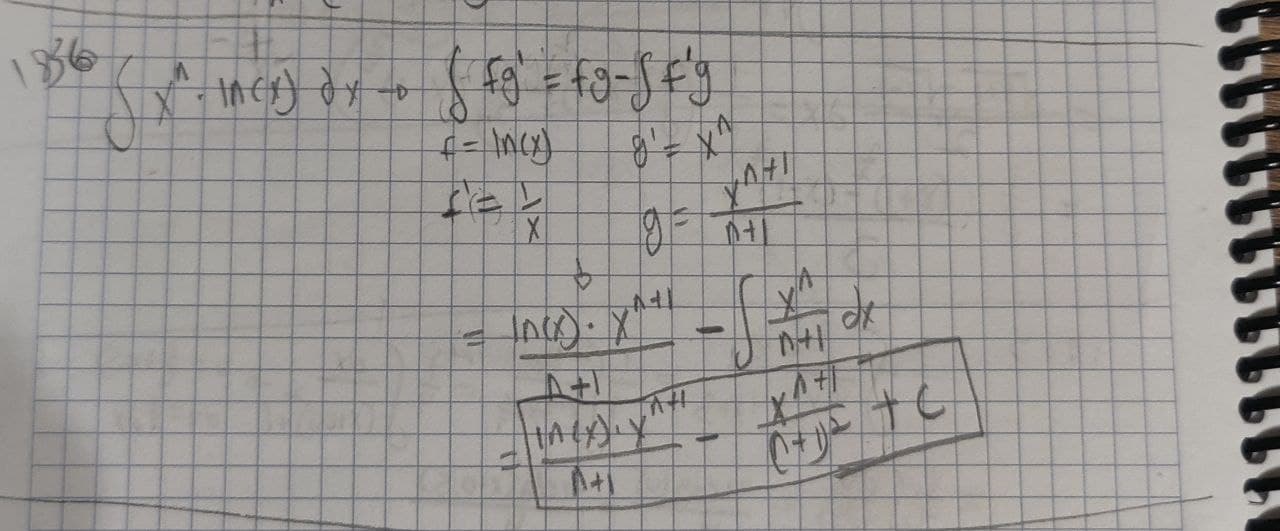 1836
∫ x^n · ln(x) dx → ∫ fg' = fg - ∫ f'g
f = ln(x) g' = x^n
f' = 1/x g = x^(n+1)/(n+1)
↓
= ln(x) · x^(n+1)/(n+1) - ∫ x^n/(n+1) dx
= ln(x) · x^(n+1)/(n+1) - x^(n+1)/(n+1)^2 + C